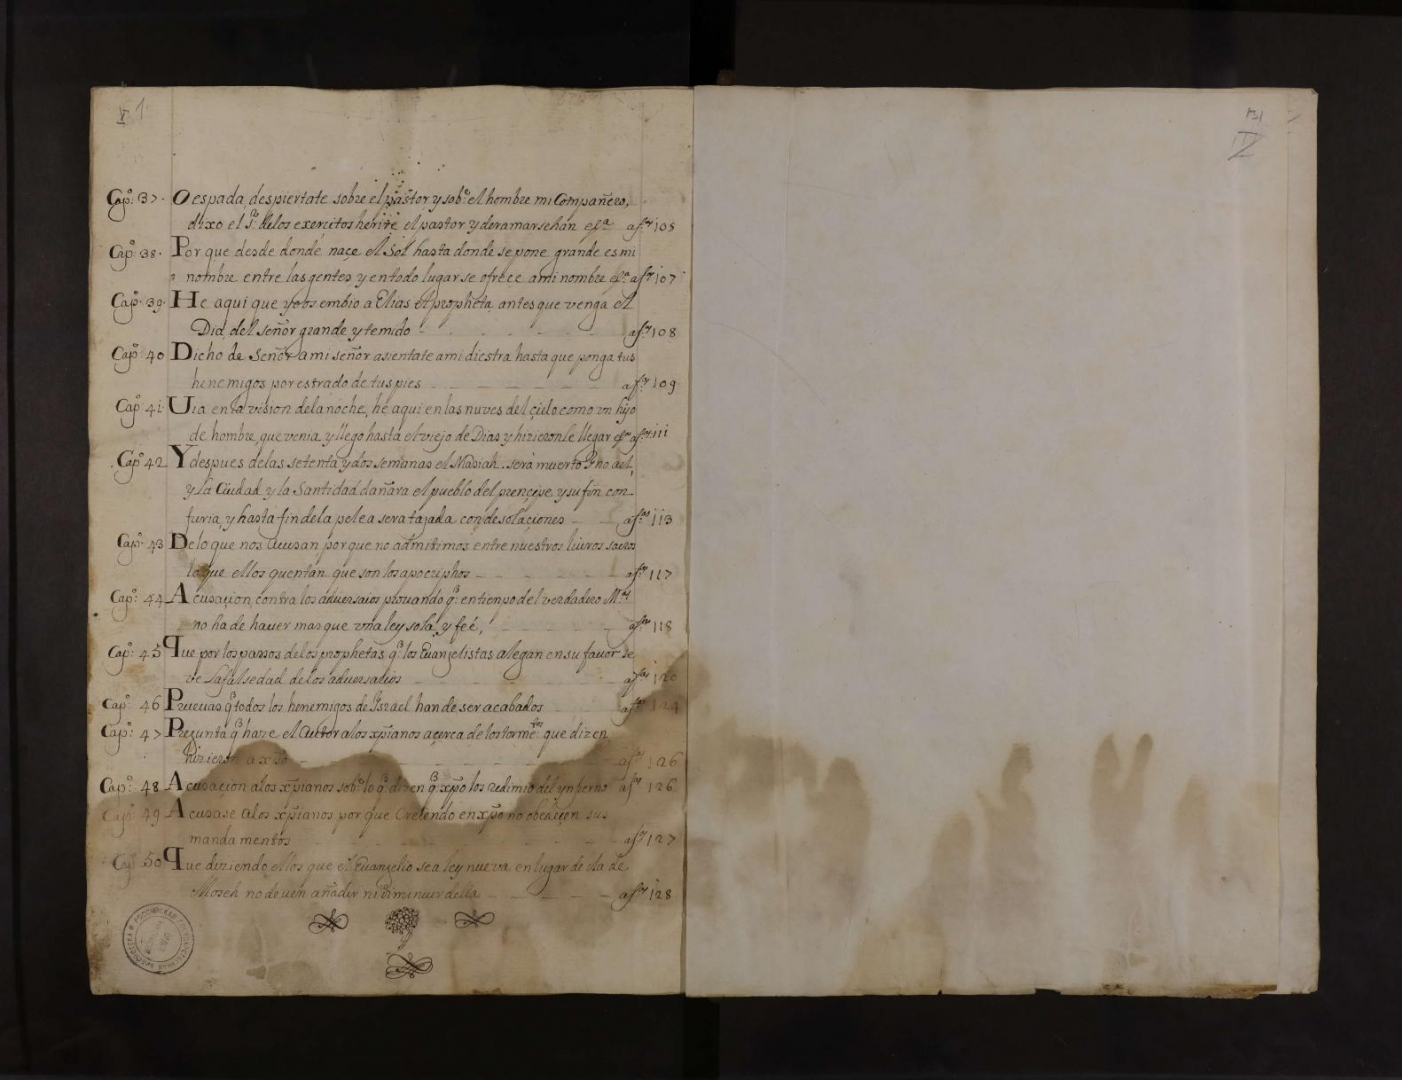 Capº. 37. O espada, despiertate sobre el pastor y sobº. el hombre mi Compañero,
dixo el Sº. de los exercitos herire el pastor y deramarsehan efª afº. 105
Capº. 38. Por que desde donde naçe el Sol hasta donde se pone grande es mi
nombre entre las gentes y en todo lugar se ofrece a mi nombre efª. afº. 107
Capº. 39. He aqui que yo os embio a Elias el propheta antes que venga el
Dia del señor grande y temido afº. 108
Capº. 40 Dicho de Señor a mi señor asientate a mi diestra hasta que ponga tus
henemigos por estrado de tus pies afº. 109
Capº. 41. Uia en la vision de la noche, he aqui en las nuves del çielo como vn hijo
de hombre, que venia y llego hasta el viejo de Dias y hizieronle llegar efª afº. 111
Capº. 42. Y despues de las setenta y dos semanas el Masiah sera muerto y no a el,
y la Ciudad y la Santidad dañara el pueblo del prençipe, y su fin con
furia, y hasta fin de la pelea sera tajada con desolaçiones afº. 113
Capº. 43 De lo que nos acusan por que no admitimos entre nuestros livros sacros
lo que ellos quentan que son los apocriphos afº. 117
Capº. 44 Acusaçion contra los adversarios provando q̃. en tienpo del verdadero
no ha de haver mas que vna ley sola, y feé, afº. 118
Capº. 45 Que por los passos de los prophetas q̃. los Euangelistas alegan en su favor se
ve la falsedad de los adversarios afº. 120
Capº. 46 Pruevas q̃ todos los henemigos de Israel han de ser acabados afº. 124
Capº. 47 Pregunta q̃ haze el Autor a los xp̃ianos açerca de los tormẽtos. que dizen
hizieron a xp̃o afº. 126
Capº. 48 Acusaçion a los xp̃ianos sobº. lo q̃. dizen q̃ xp̃o los redimio del ynferno afº. 126
Capº. 49 Acusase a los xp̃ianos por que Creiendo en xp̃o no obedeçen sus
mandamentos afº. 127
Capº. 50 Que diziendo ellos que el Euangelio sea ley nueva en lugar de la de
Moseh no deven añadir ni diminuir della afº. 128